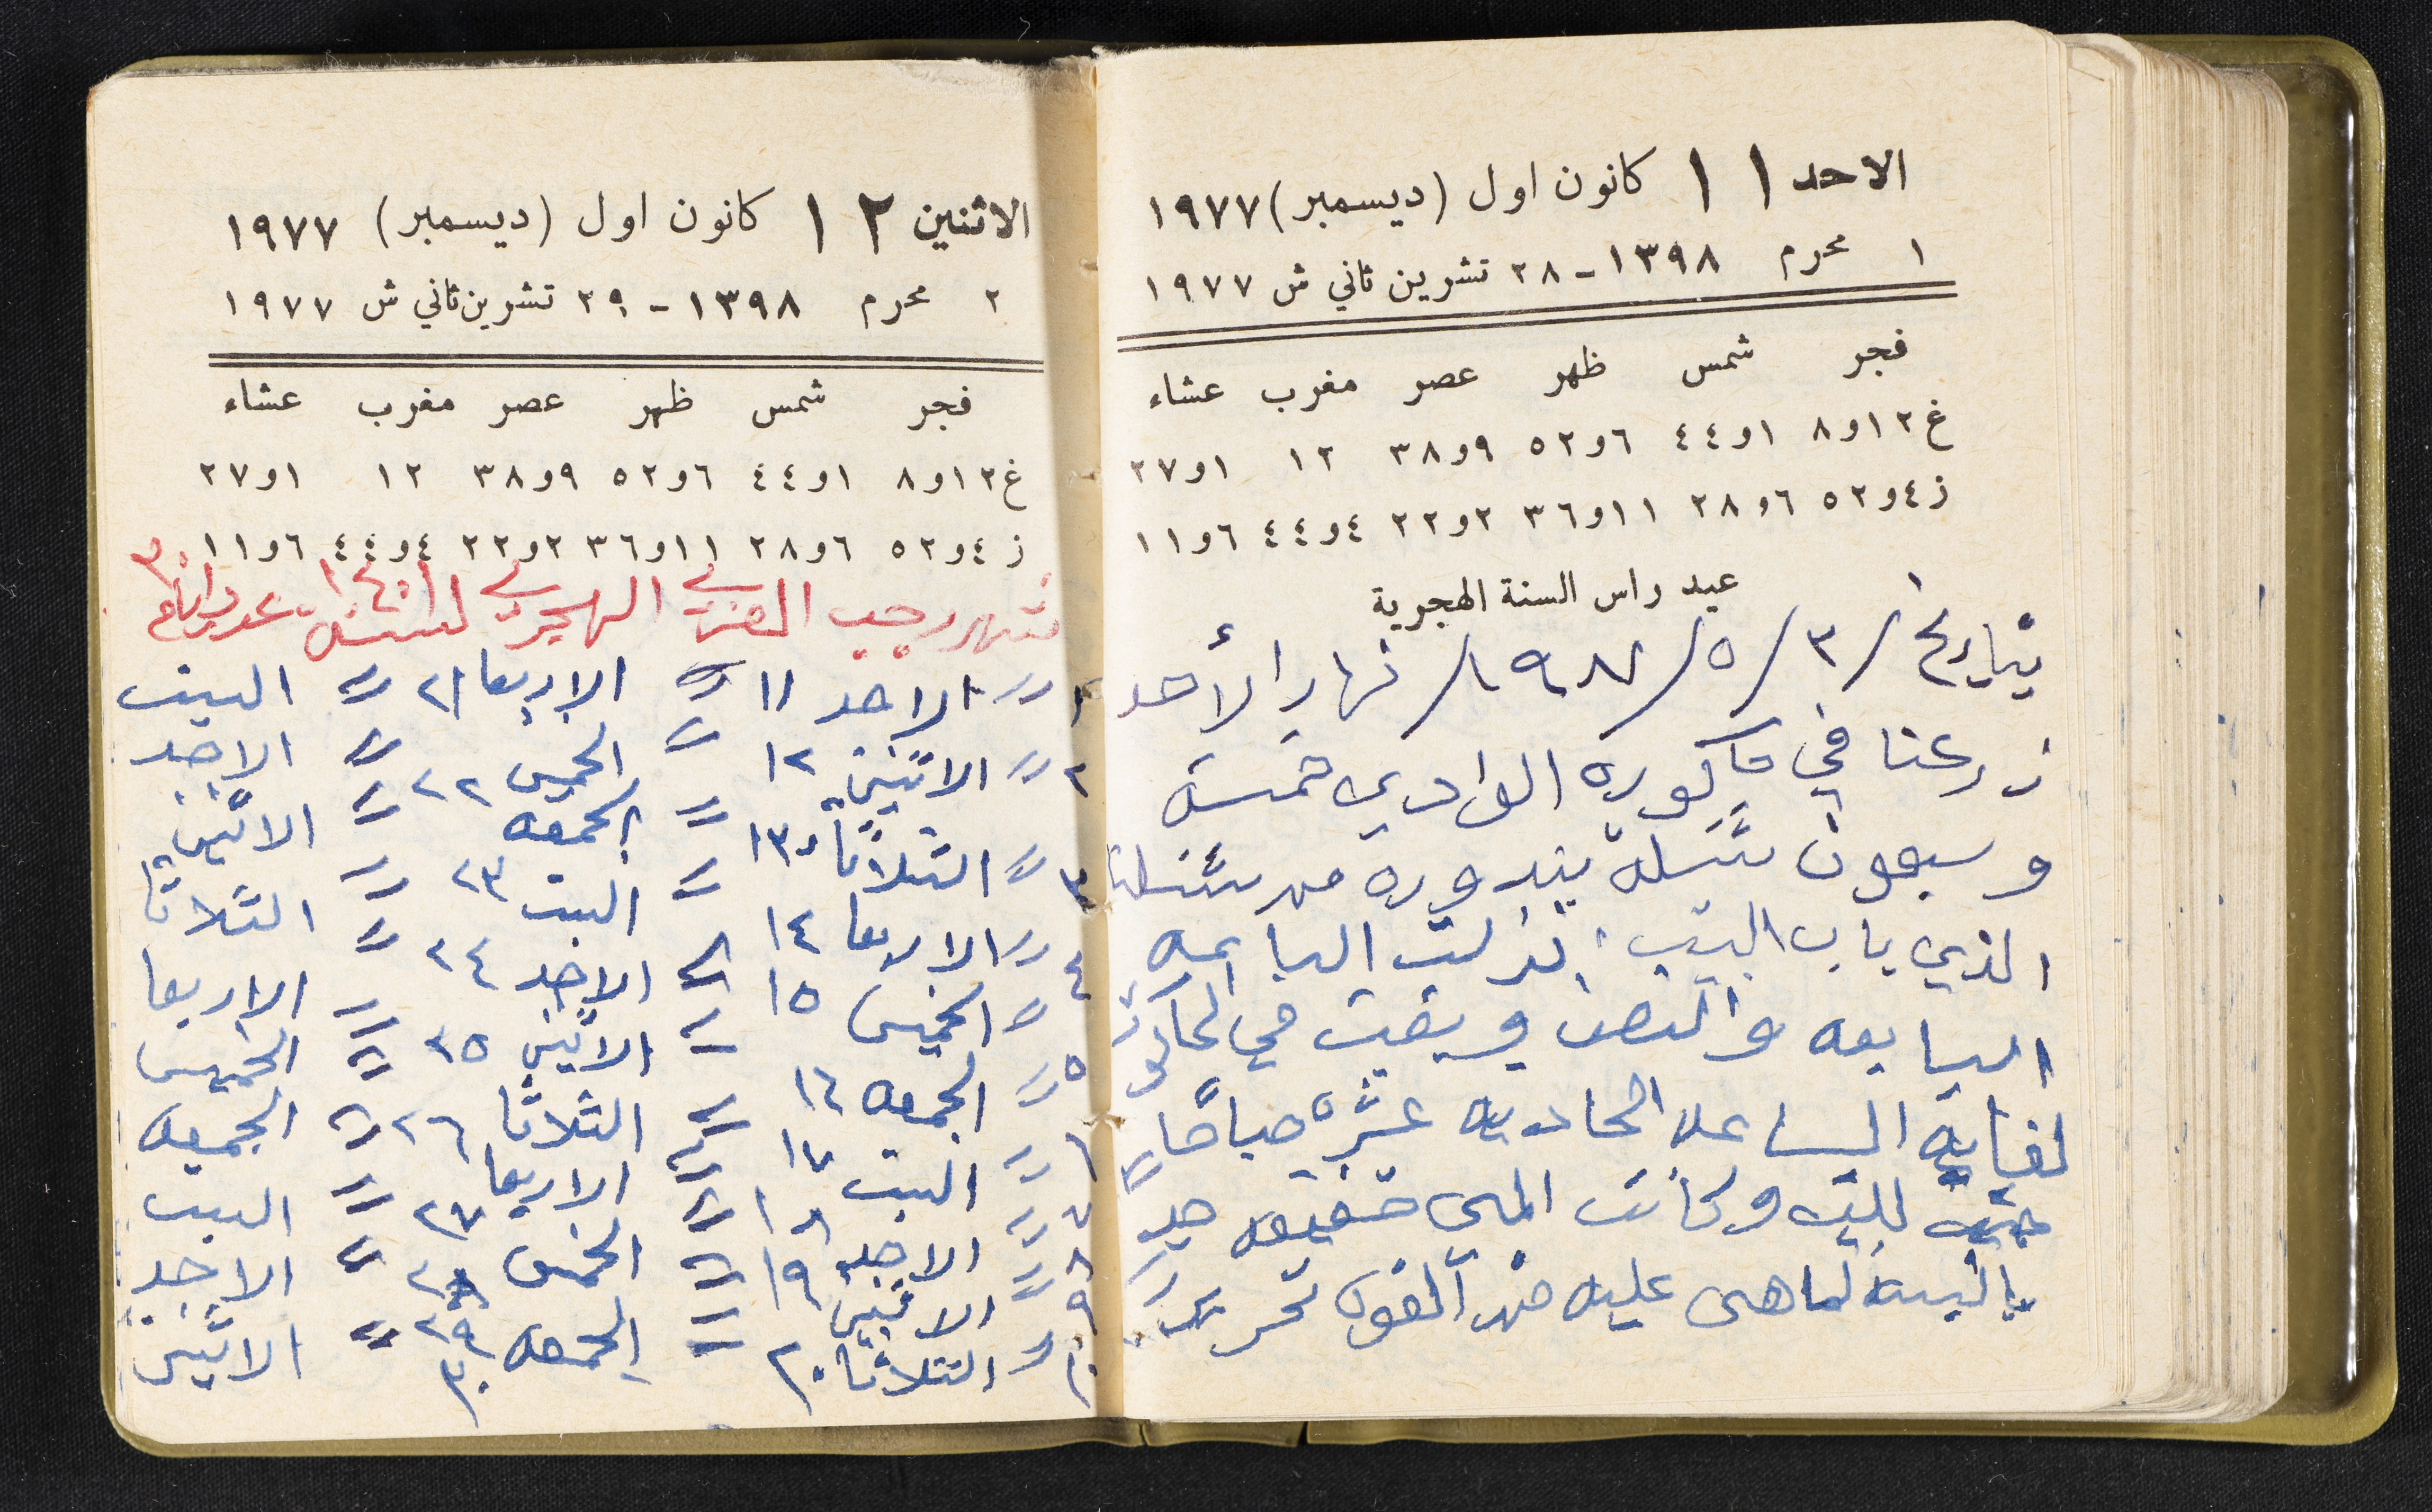 الاحد ١١ كانون اول (ديسمبر) ١٩٧٧
١ محرم ١٣٩٨ - ٢٨ تشرين ثاني ش ١٩٧٧
فجر شمس ظهر عصر مغرب عشاء
غ ١٢و٨ ١و٤٤ ٦و٥٢ ٩و٣٨ ١٢ ١و٢٧
ز ٤و٥٢ ٦و٢٨ ١١و٣٦ ٢و٢٢ ٤و٤٤ ٦و١١
عيد راس السنة الهجرية
بتاريخ ٣/٥/١٩٨١/ نهار الأحد
زرعنا في حاكورة الوادي خمسة
وسبعون شتله بندوره من شتلنا
الذي باب البيت. نزلت الساعه
السابعه والنصف وبقيت في الحاكورة
لغاية الساعه الحاديه عشره صباحاً
جيت للبيت وكانت المي خفيفه جداً
الاثنين ١٢ كانون اول (ديسمبر) ١٩٧٧
٢ محرم ١٣٩٨ - ٢٩ تشرين ثاني ش ١٩٧٧
فجر شمس ظهر عصر مغرب عشاء
غ ١٢و٨ ١و٤٤ ٦و٥٢ ٩و٣٨ ١٢ ١و٢٧
ز ٤و٥٢ ٦و٢٨ ١١و٣٦ ٢و٢٢ ٤و٤٤ ٦و١١
شهر رجب الهجري لسنة ١٤٠٧ ٣٠
١ = الاحد ١١ = الاربعا ٢١ = السبت
٢ = الاثنين ١٢ = الخميس ٢٢ = الاحد
٣ = الثلاثا ١٣ = الجمعه ٢٣ = الاثنين
٤ = الاربعا ١٤ = السبت ٢٤ = الثلاثا
٥ = الخميس ١٥ = الاحد ٢٥ = الاربعا
٦ = الجمعه ١٦ = الاثنين ٢٦ = الخميس
٧ = السبت ١٧ = الثلاثا ٢٧ = الجمعه
٨ = الاحد ١٨ = الاربعا ٢٨ = السبت
٩ = الاثنين ١٩ = الخميس ٢٩ = الاحد
١٠ = الثلاثا ٢٠ = الجمعه ٣٠ = الاثنين